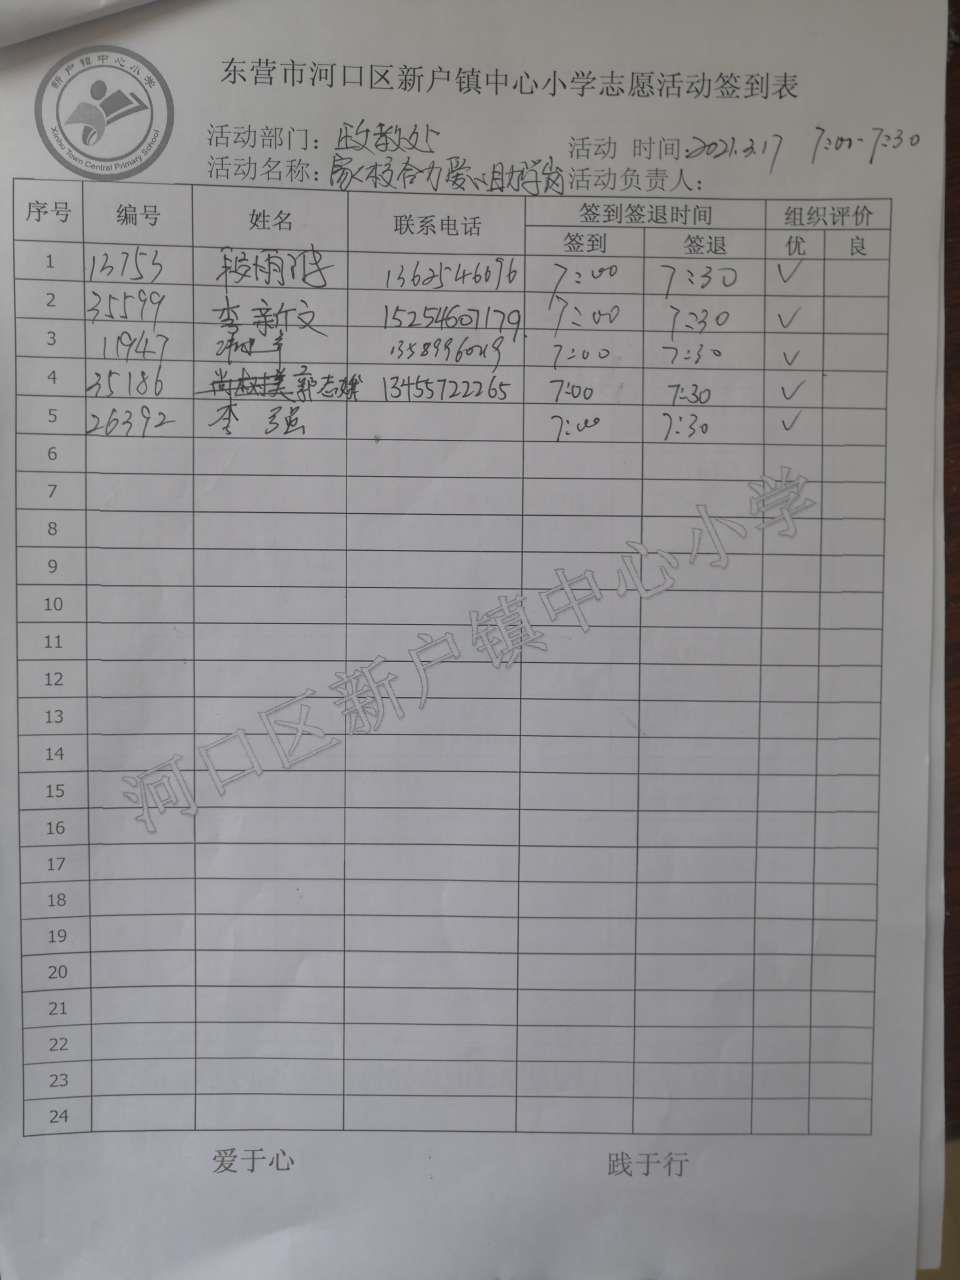 新户镇中心小学
Xinhu Town Central Primary School
东营市河口区新户镇中心小学志愿活动签到表
活动部门：政教处 活动 时间:2021.3.17 7:00-7:30
活动名称：家校合力爱心助学岗 活动负责人：
序号 编号 姓名 联系电话 签到签退时间 组织评价
签到 签退 优 良
1 13753 段雨 1362546696 7:00 7:30 ✓
2 35599 李新文 15254607179 7:00 7:30 ✓
3 11947 7:00 7:30 ✓
4 35186 郭志 13455722265 7:00 7:30 ✓
5 26392 李强 7:00 7:30 ✓
6
7
8
9
10
11
12
13
14
15
16
17
18
19
20
21
22
23
24
河口区新户镇中心小学
爱于心 践于行